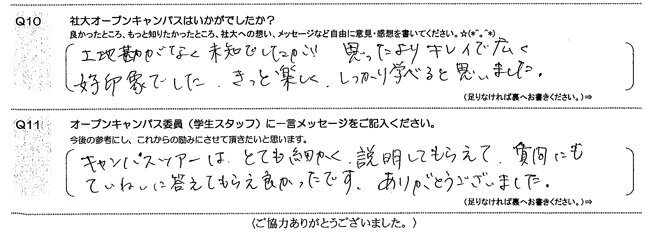 Q10 社大オープンキャンパスはいかがでしたか？
良かったところ、もっと知りたかったところ、社大への想い、メッセージなど自由に意見・感想を書いてください。☆(*^_^*)
土地勘がなく未知でしたが!! 思ったよりキレイで広く
好印象でした。きっと楽しく、しっかり学べると思いました。
(足りなければ裏へお書きください。)⇒
Q11 オープンキャンパス委員（学生スタッフ）に一言メッセージをご記入ください。
今後の参考にし、これからの励みにさせて頂きたいと思います。
キャンパスツアーは、とても細かく、説明してもらえて、質問にも
ていねいに答えてもらえ良かったです。ありがとうございました。
(足りなければ裏へお書きください。)⇒
〈ご協力ありがとうございました。〉